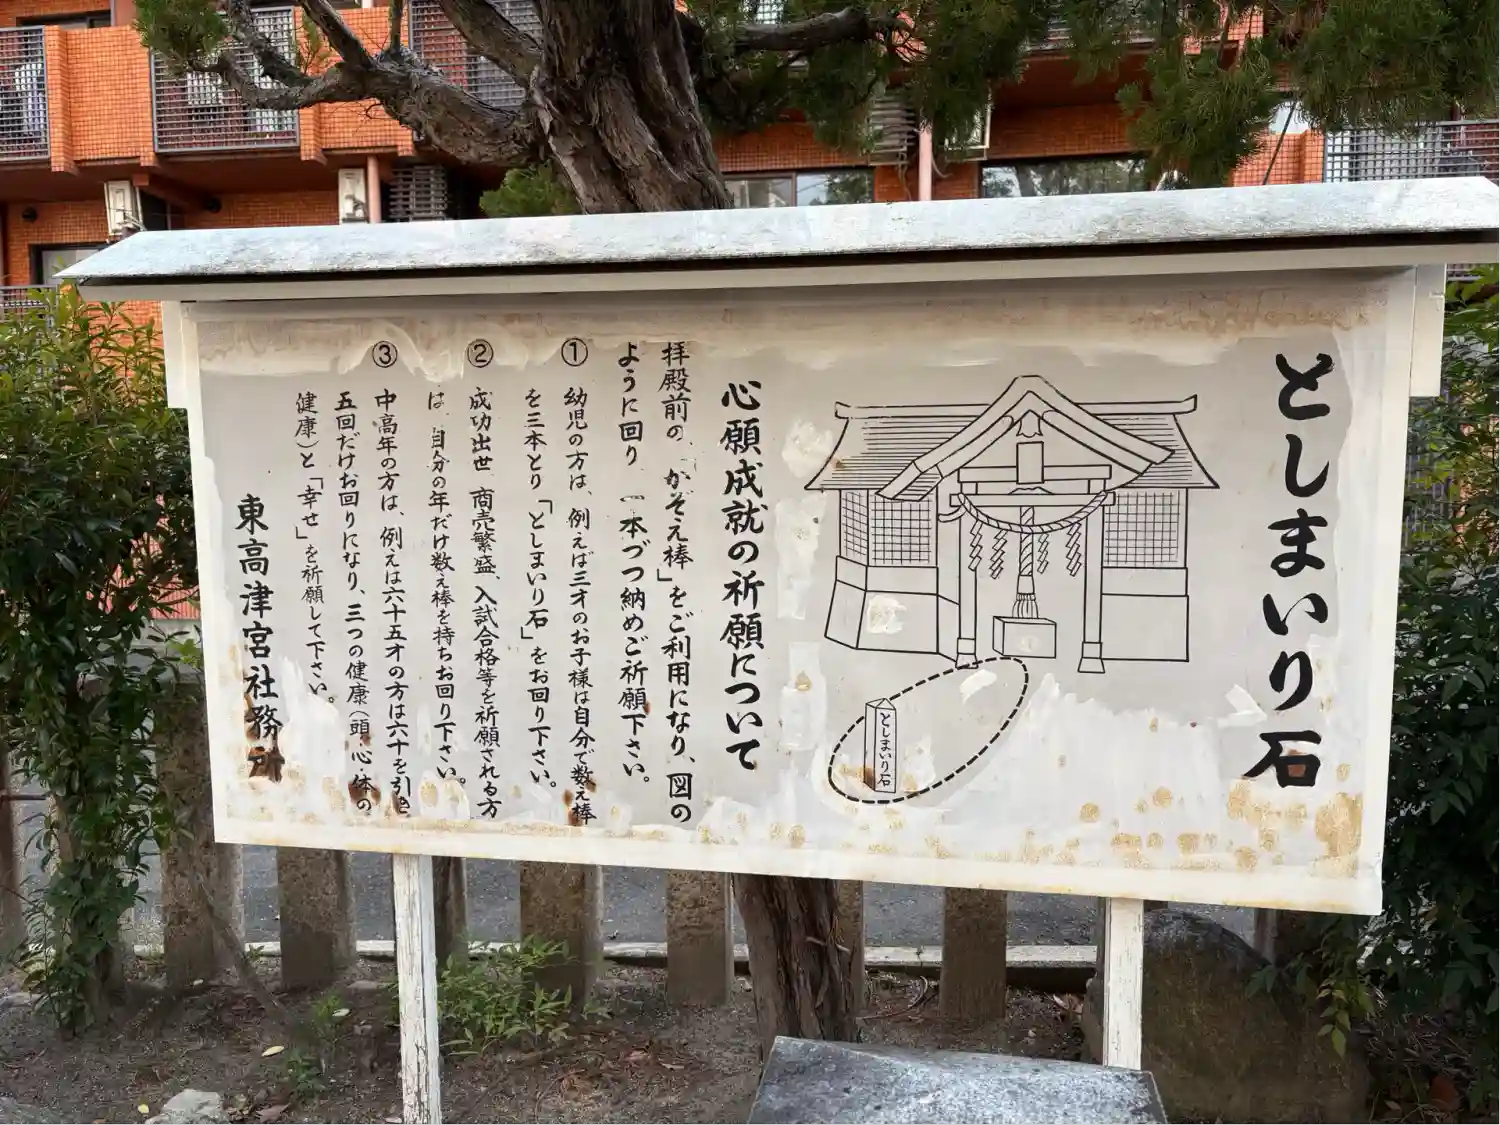 としまいり石
としまいり石
心願成就の祈願について
拝殿前の「かぞえ棒」をご利用になり、図の
ように回り 一本づつ納めご祈願下さい。
① 幼児の方は、例えば三才のお子様は自分で数え棒
を三本とり「としまいり石」をお回り下さい。
② 成功出世 商売繁盛、入試合格等を祈願される方
は、自分の年だけ数え棒を持ちお回り下さい。
③ 中高年の方は、例えば六十五才の方は六十を引き
五回だけお回りになり、三つの健康（頭・心・体の
健康）と「幸せ」を祈願して下さい。
東高津宮社務所